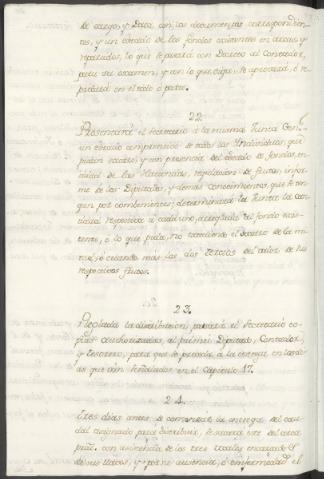 de cargo, y Data con los documentos correspondien-
tes, y un estado de los fondos existentes en arcas, y
repartidos, lo que se pasará con Decreto al Contador,
para su examen, y con lo que diga, se aprobará, ó re-
pulsará en el todo ó parte.
22.
Presentará el Secretario á la misma Junta Gen.
un estado comprensivo de todos los Individuos que
pidan socorro, y con presencia del estado de fondos, en-
tidad de las Haciendas, regulacion de frutos, infor-
me de los Diputados, y demas conocimientos que ten-
gan por combenientes; determinará la Junta la can-
tidad respectiva á cada uno, arreglada al fondo exis-
tente, ó lo que pida, no excediendo el socorro de la mi-
tad, ó cuando mas las dos terceras del valor de sus
respectivos frutos.
23.
Reglada la distribucion, pasará el Secretario co-
pias authorizadas, al primer Diputado, Contador,
y Tesorero, para que se proceda á la entrega en
que van señaladas en el capitulo 17.
24.
Tres dias antes de comenzar la entrega del cau-
dal asignado para distribuir, se sacará este del arca
con asistencia de los tres Vocales encargados
de sus llaves, y por su ausencia, ó enfermedad el